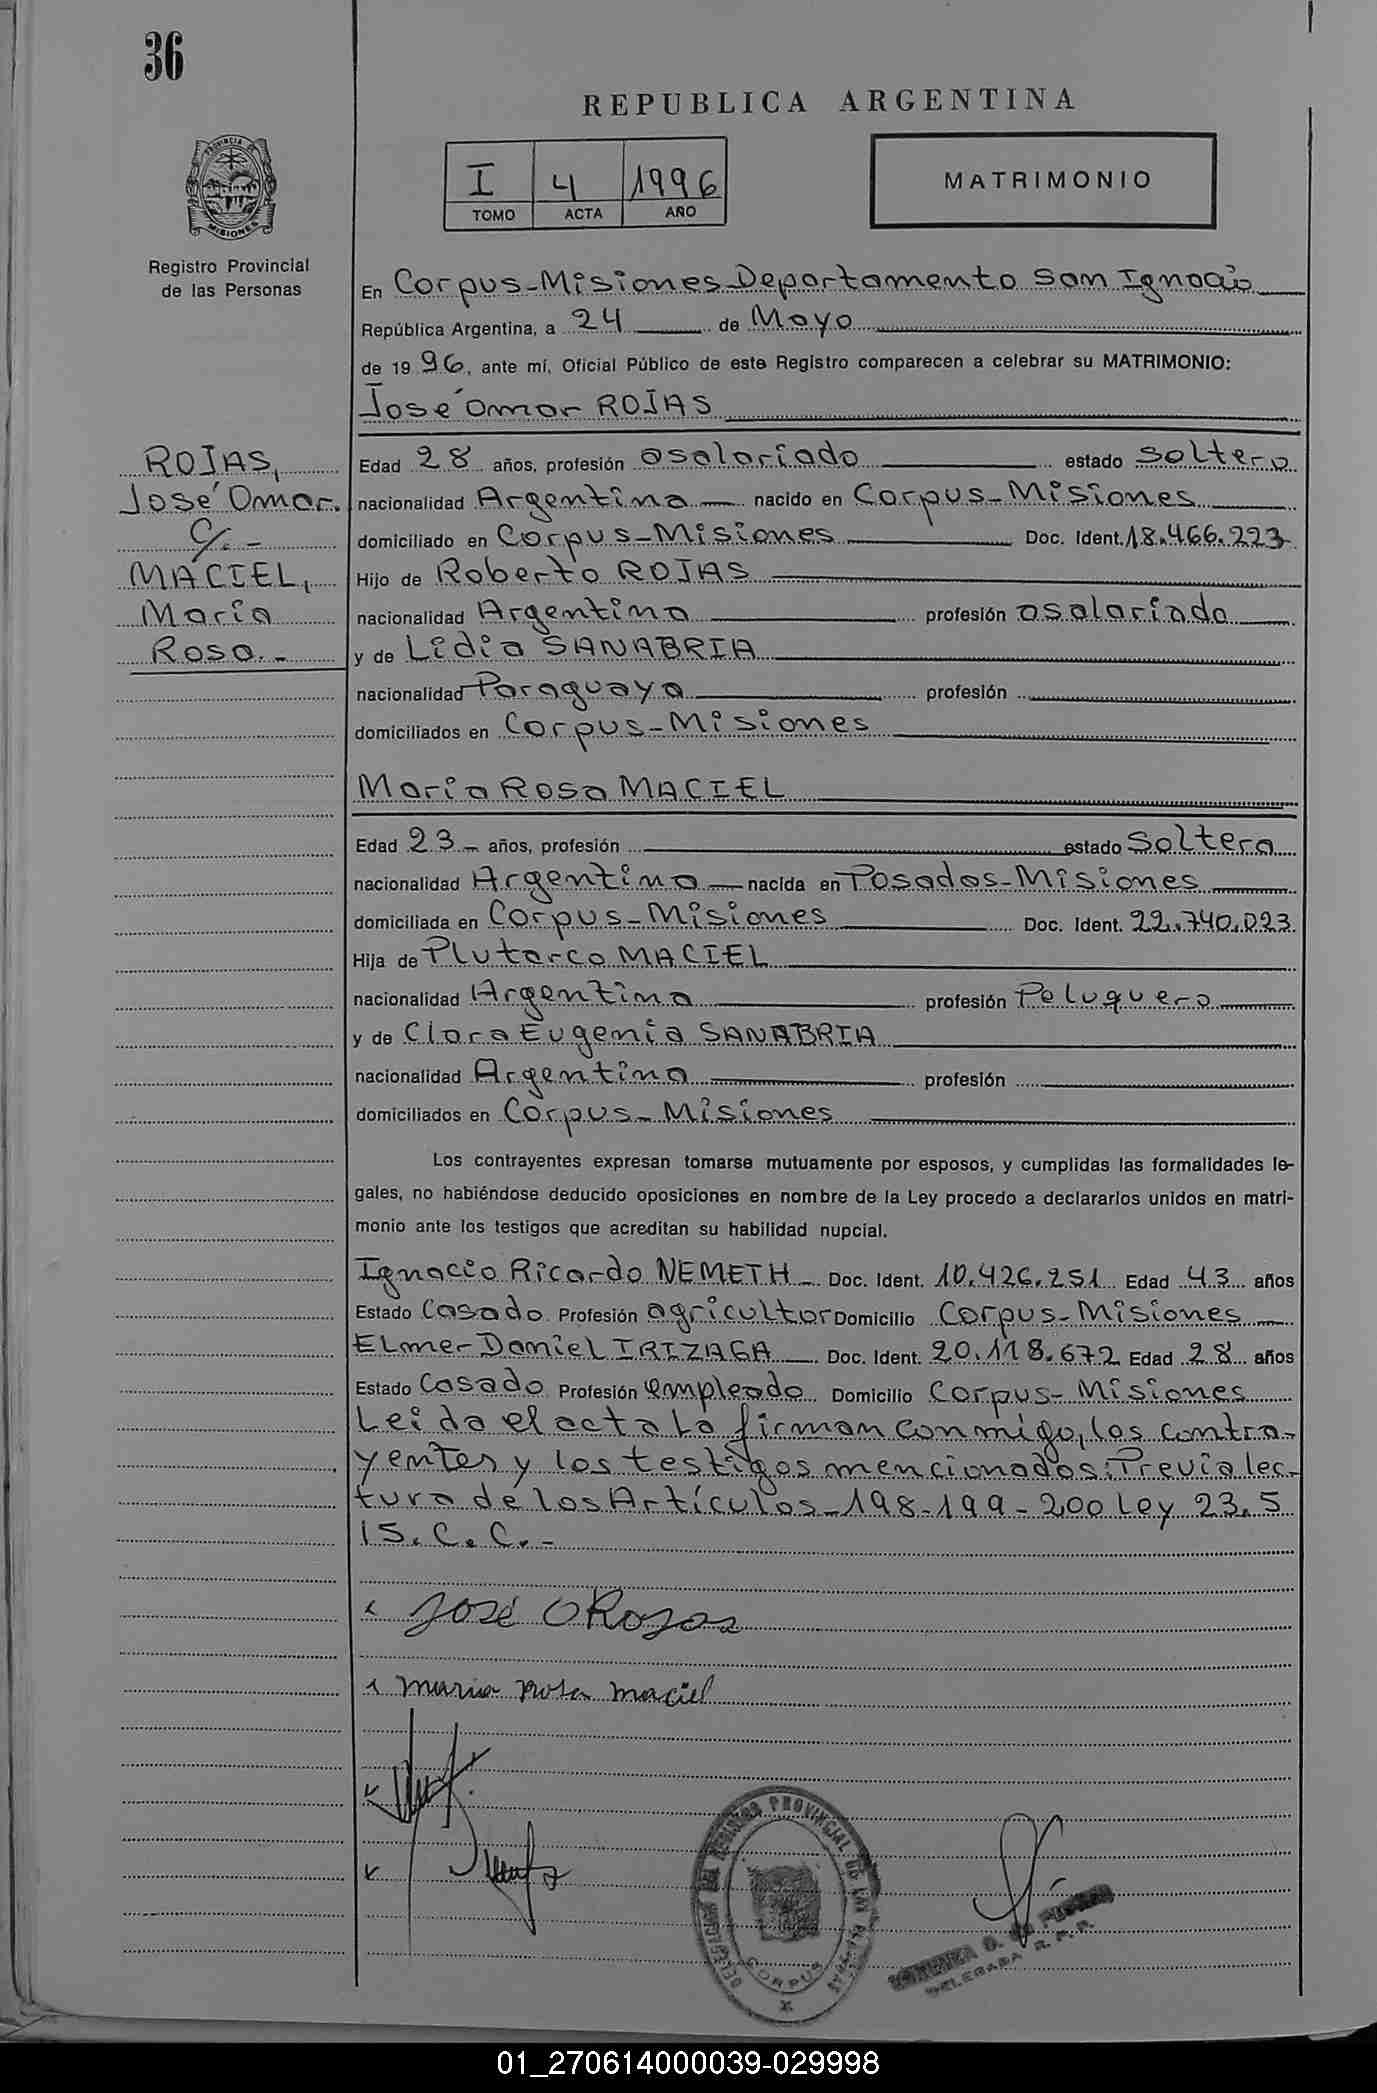 36
REPUBLICA ARGENTINA
I 4 1996
TOMO ACTA AÑO
MATRIMONIO
PROVINCIA DE
MISIONES
Registro Provincial
de las Personas
En Corpus-Misiones Departamento San Ignacio
República Argentina, a 24 de Mayo
de 1996, ante mí, Oficial Público de este Registro comparecen a celebrar su MATRIMONIO:
José Omar ROJAS
ROJAS,
José Omar.
C/.-
MACIEL,
María
Rosa.-
Edad 28 años, profesión asalariado estado soltero
nacionalidad Argentina nacido en Corpus-Misiones
domiciliado en Corpus-Misiones Doc. Ident. 18.466.223
Hijo de Roberto ROJAS
nacionalidad Argentina profesión asalariado
y de Lidia SANABRIA
nacionalidad Paraguaya profesión
domiciliados en Corpus-Misiones
María Rosa MACIEL
Edad 23 años, profesión estado soltera
nacionalidad Argentina nacida en Posadas-Misiones
domiciliada en Corpus-Misiones Doc. Ident. 22.740.023
Hija de Plutarco MACIEL
nacionalidad Argentina profesión Peluquero
y de Clara Eugenia SANABRIA
nacionalidad Argentina profesión
domiciliados en Corpus-Misiones
Los contrayentes expresan tomarse mutuamente por esposos, y cumplidas las formalidades le-
gales, no habiéndose deducido oposiciones en nombre de la Ley procedo a declararlos unidos en matri-
monio ante los testigos que acreditan su habilidad nupcial.
Ignacio Ricardo NEMETH Doc. Ident. 10.426.251 Edad 43 años
Estado Casado Profesión agricultor Domicilio Corpus-Misiones
ELmer Daniel IRIZAGA Doc. Ident. 20.118.672 Edad 28 años
Estado Casado Profesión empleado Domicilio Corpus-Misiones
Leida el acta la firman conmigo, los contra-
yentes y los testigos mencionados: Previa lec-
tura de los Artículos-198-199-200 Ley 23.5
15.C.C.-
José O Rojas
maria rosa maciel
REGISTRO PROVINCIAL DE LAS PERSONAS
CORPUS
DELEGADA R. P. P.
01_270614000039-029998